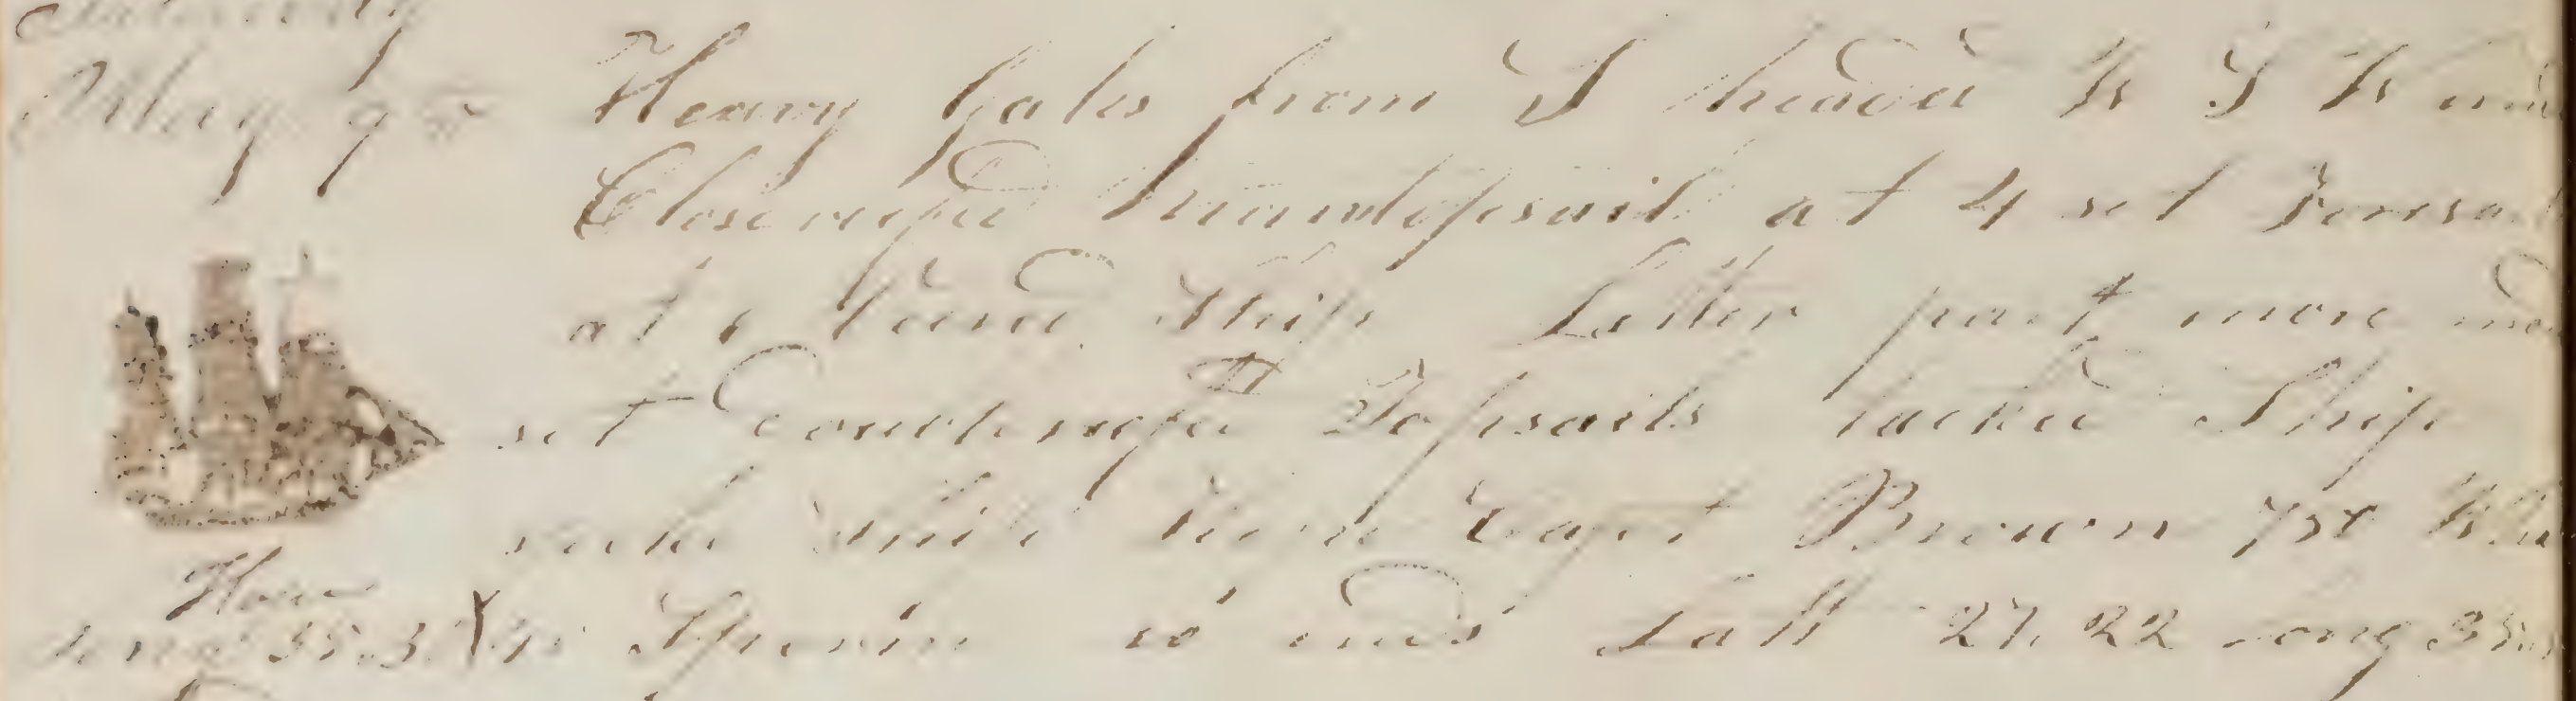 Saturday
May 9th Heavy Gales from S headed W S W und
Close reefed Maintopsail at 4 set foresa
at 6 tacked Ship Latter part more mo
set double reefed Topsails tacked Ship
Ship Capt Brown
Hour
Long 35.3 Sperm so ends Latt 27,22 Long 35